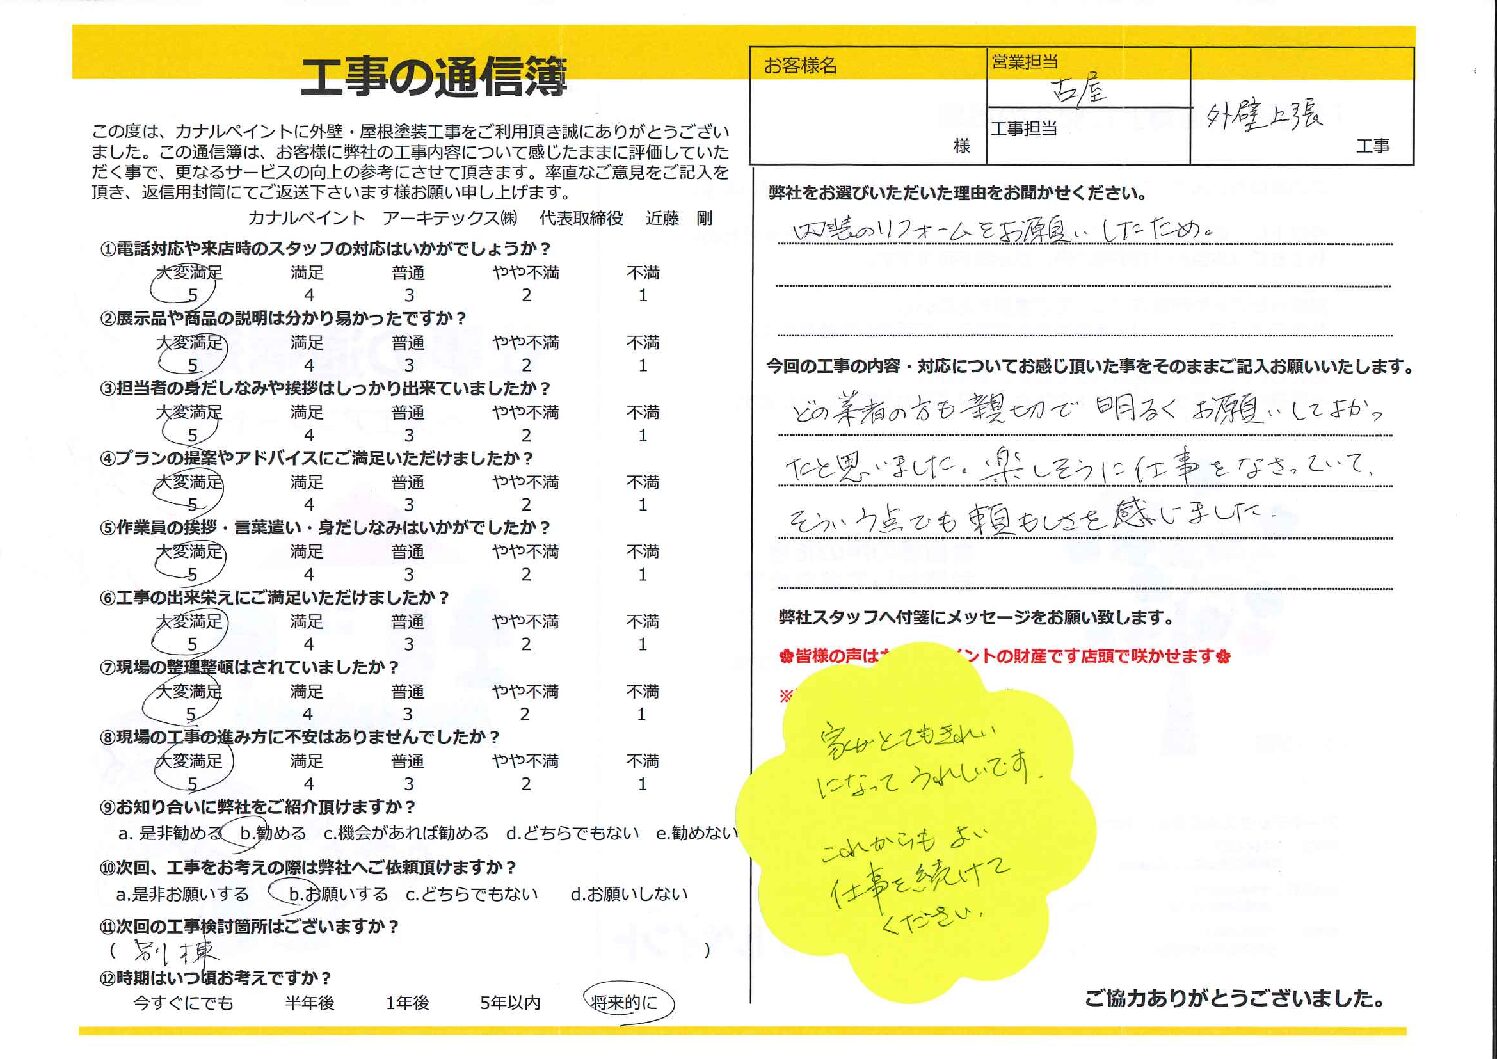 工事の通信簿
この度は、カナルペイントに外壁・屋根塗装工事をご利用頂き誠にありがとうござい
ました。この通信簿は、お客様に弊社の工事内容について感じたままに評価していた
だく事で、更なるサービスの向上の参考にさせて頂きます。率直なご意見をご記入を
頂き、返信用封筒にてご返送下さいます様お願い申し上げます。
カナルペイント アーキテックス㈱ 代表取締役 近藤 剛
①電話対応や来店時のスタッフの対応はいかがでしょうか?
大変満足 満足 普通 やや不満 不満
5 4 3 2 1
②展示品や商品の説明は分かり易かったですか?
大変満足 満足 普通 やや不満 不満
5 4 3 2 1
③担当者の身だしなみや挨拶はしっかり出来ていましたか?
大変満足 満足 普通 やや不満 不満
5 4 3 2 1
④プランの提案やアドバイスにご満足いただけましたか?
大変満足 満足 普通 やや不満 不満
5 4 3 2 1
⑤作業員の挨拶・言葉遣い・身だしなみはいかがでしたか?
大変満足 満足 普通 やや不満 不満
5 4 3 2 1
⑥工事の出来栄えにご満足いただけましたか?
大変満足 満足 普通 やや不満 不満
5 4 3 2 1
⑦現場の整理整頓はされていましたか?
大変満足 満足 普通 やや不満 不満
5 4 3 2 1
⑧現場の工事の進み方に不安はありませんでしたか?
大変満足 満足 普通 やや不満 不満
5 4 3 2 1
⑨お知り合いに弊社をご紹介頂けますか?
a. 是非勧める b.勧める c.機会があれば勧める d.どちらでもない e.勧めない
⑩次回、工事をお考えの際は弊社へご依頼頂けますか?
a.是非お願いする b.お願いする c.どちらでもない d.お願いしない
⑪次回の工事検討箇所はございますか?
( 別棟 )
⑫時期はいつ頃お考えですか?
今すぐにでも 半年後 1年後 5年以内 将来的に
お客様名
様
営業担当
古屋
工事担当
外壁上張
工事
弊社をお選びいただいた理由をお聞かせください。
内装のリフォームをお願いしたため。
今回の工事の内容・対応についてお感じ頂いた事をそのままご記入お願いいたします。
どの業者の方も親切で明るくお願いしてよかっ
たと思いました。楽しそうに仕事をなさっていて、
そういう点でも頼もしさを感じました.
弊社スタッフへ付箋にメッセージをお願い致します。
✿皆様の声は ントの財産です店頭で咲かせます✿
※
家がとてもきれい
になってうれしいです.
これからもよい
仕事を続けて
ください.
ご協力ありがとうございました。